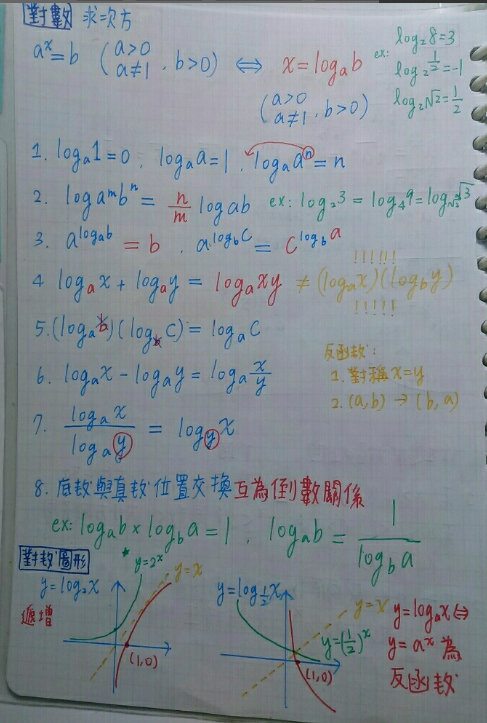 對數 求次方
aˣ=b (a>0 a≠1 , b>0) ⇔ x=logₐb (a>0 a≠1 , b>0)
ex: log₂8=3
log₂1/2=-1
log₂√2=1/2
1. logₐ1=0 . logₐa=1 . logₐaⁿ=n
2. log aᵐbⁿ = n/m logab ex: log₂3 = log₄9 = log√2 √3
3. a^logab = b . a^logbC = C^logb a
4 logₐx + logₐy = logₐxy ≠ (logₐx)(log_b y)
!!!!!!
!!!!!
5. (logₐb)(log_b C) = logₐC
6. logₐx - logₐy = logₐ x/y
7. logₐx / logₐy = log_y x
反函數:
1. 對稱x=y
2. (a,b) → (b,a)
8. 底數與真數位置交換互為倒數關係
ex: logₐb × log_b a = 1 . logₐb = 1 / log_b a
對數圖形
y=log₂x
遞增
y=2ˣ
y=x
(1,0)
y=log1/2 x
y=x
y=(1/2)ˣ
(1,0)
y=logₐx ⇔
y=aˣ 為
反函數